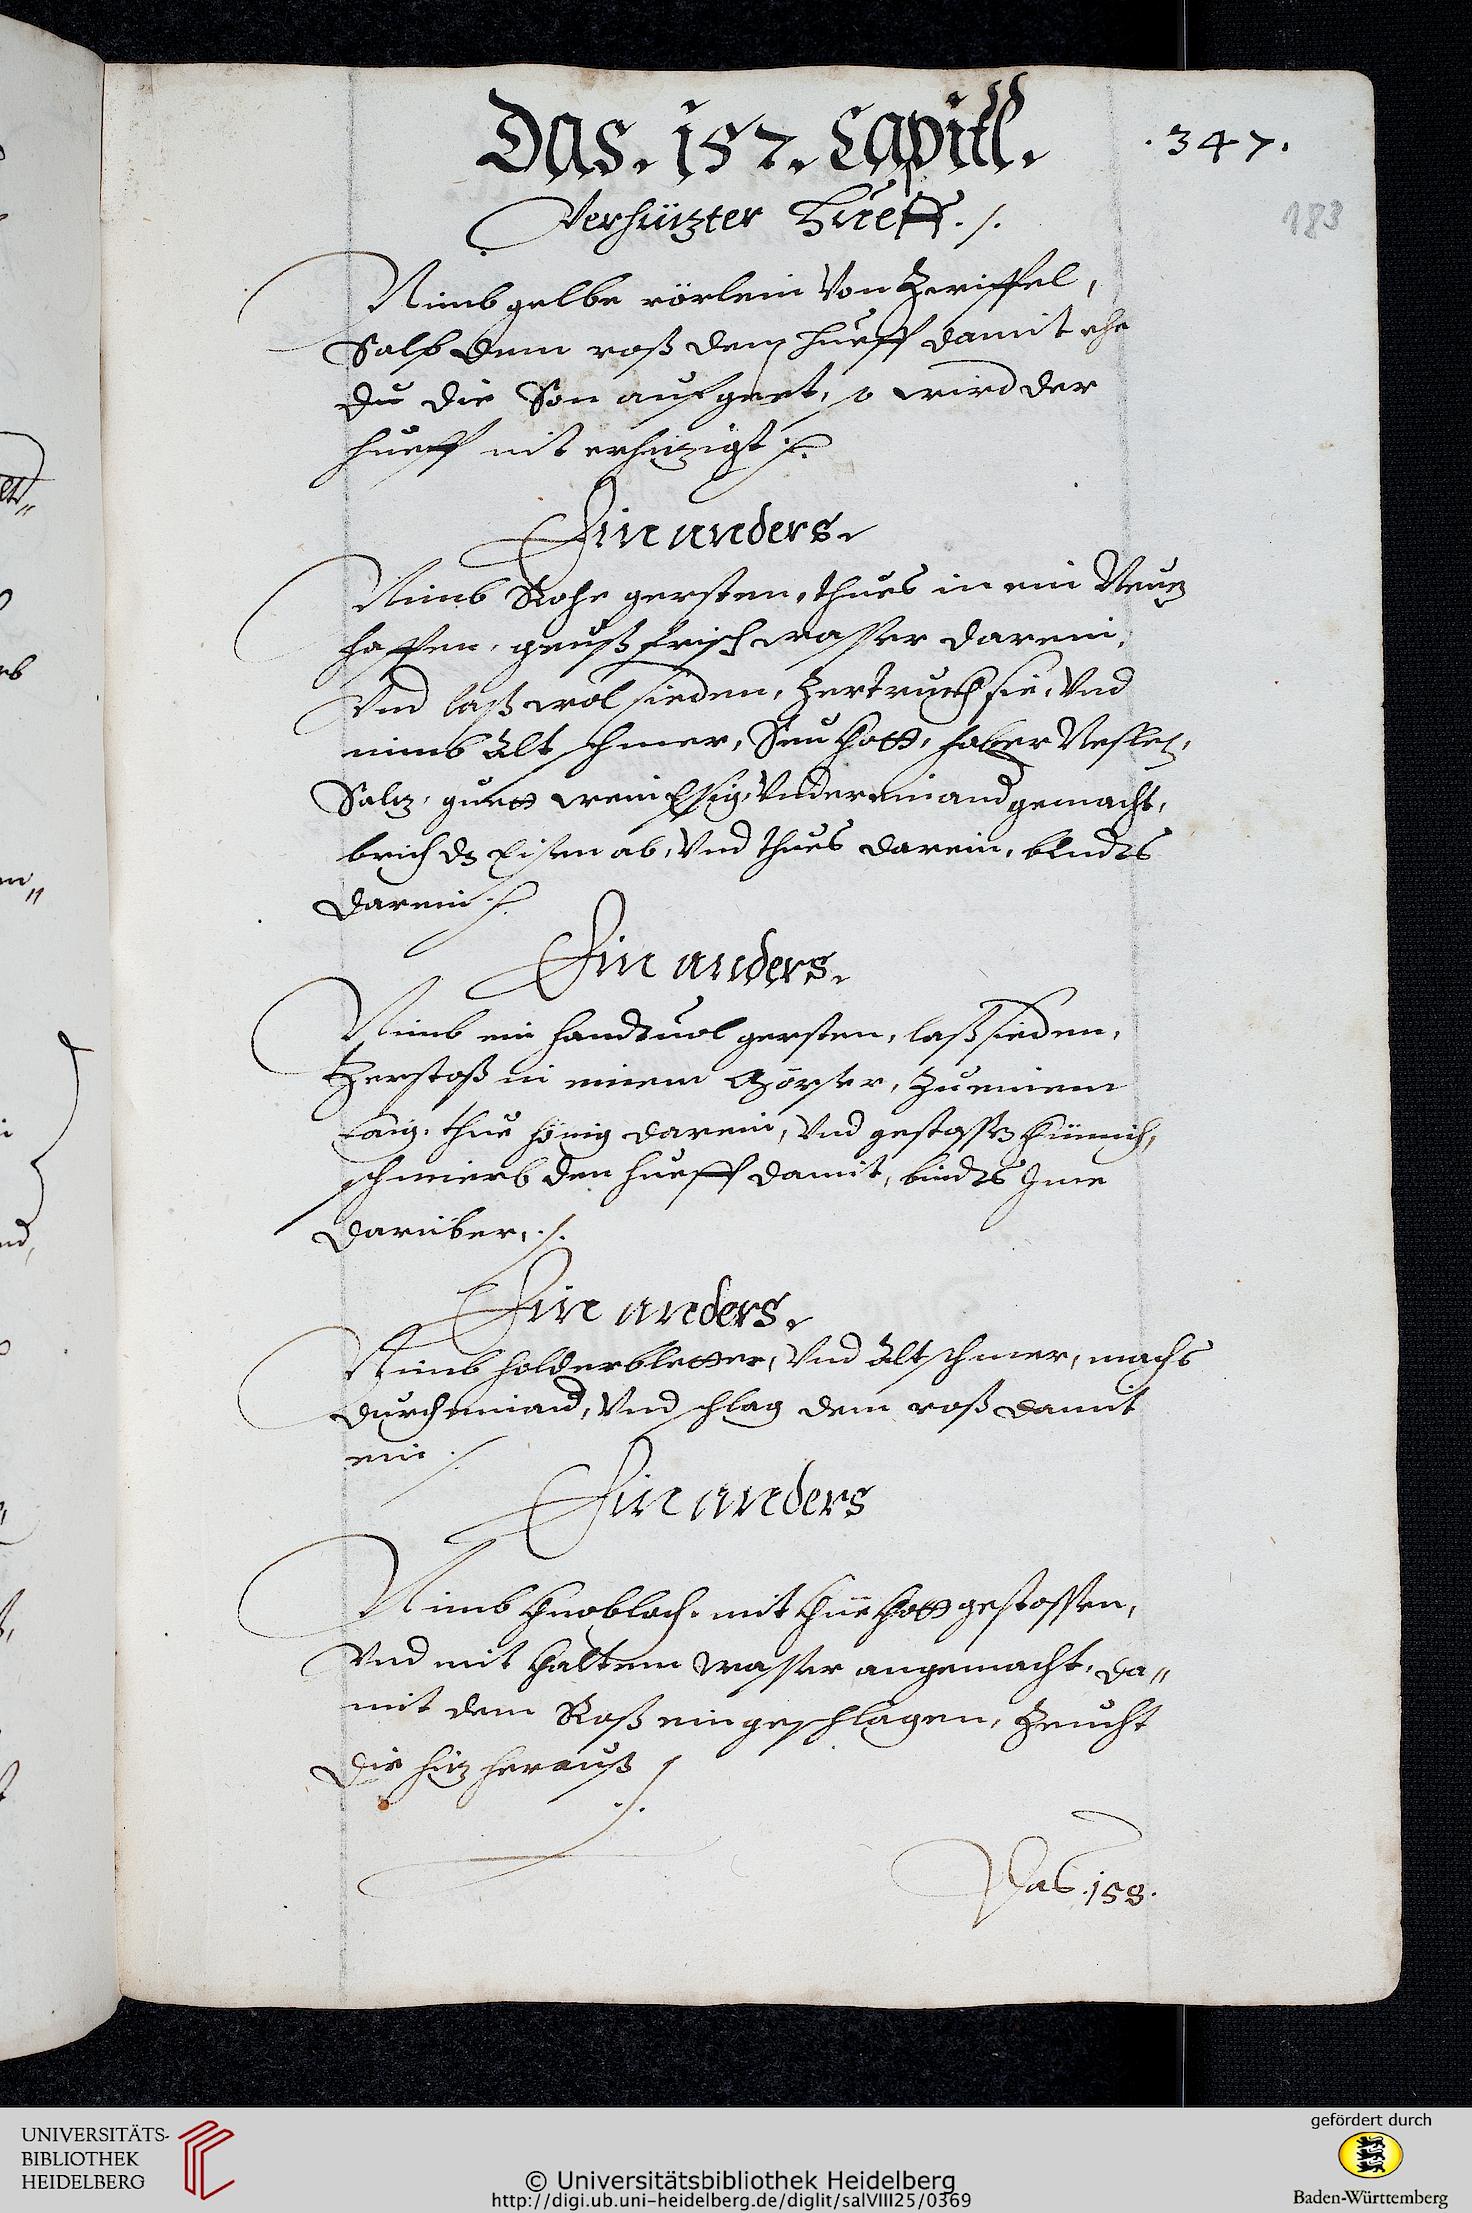 Das. 157. Capitl.
.347.
183
Verhützter Hueff ./.
Nimb gelbe rörlein Von Zwiffel,
Salb dem roß den hueff damit ehe
du die Son aufgeet, so wird der
hueff nit erhitzigt ./.
Ein anders.
Nimb Rohe gersten, thues in ein Neuen
haffen, geuß frisch wasser darein,
Vnd laß wol sieden, Zertruckh sie, Vnd
nimb Alt schmer, Seu Khott,
Saltz, guett wein Essig, Vndereinand gemacht,
brich dz Eisen ab, Vnd thues darein, bindts
darein ./.
Ein anders.
Nimb ein handtuol gersten, laß sieden,
Zerstoß in einem Mörser, Zu einem
taig, thue hönig darein, Vnd gestossen Khümich,
schmierb den hueff damit, bindts Ime
darüber, ./.
Ein anders.
Nimb holderbletter, Vnd Alt schmer, machs
durcheinand, Vnd schlag dem roß damit
ein ./.
Ein anders
Nimb Khnobloch, mit Khüe Khott gestossen,
Vnd mit Khaltem wasser angemacht, da„
mit dem Roß eingeschlagen, Zeucht
die hitz herauß ./.
Das .158.
UNIVERSITÄTS-
BIBLIOTHEK
HEIDELBERG
© Universitätsbibliothek Heidelberg
http://digi.ub.uni-heidelberg.de/diglit/salVIII25/0369
gefördert durch
Baden-Württemberg